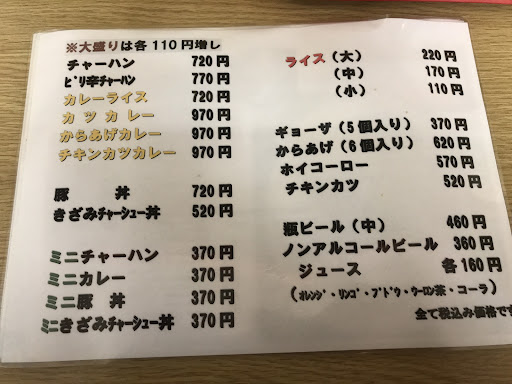 ※大盛りは各110円増し
チャーハン 720円
ピリ辛チャーハン 770円
カレーライス 720円
カツカレー 970円
からあげカレー 970円
チキンカツカレー 970円
豚丼 720円
きざみチャーシュー丼 520円
ミニチャーハン 370円
ミニカレー 370円
ミニ豚丼 370円
ミニきざみチャーシュー丼 370円
ライス（大） 220円
（中） 170円
（小） 110円
ギョーザ（5個入り） 370円
からあげ（6個入り） 620円
ホイコーロー 570円
チキンカツ 520円
瓶ビール（中） 460円
ノンアルコールビール 360円
ジュース 各160円
（オレンジ・リンゴ・ブドウ・ウーロン茶・コーラ）
全て税込み価格です